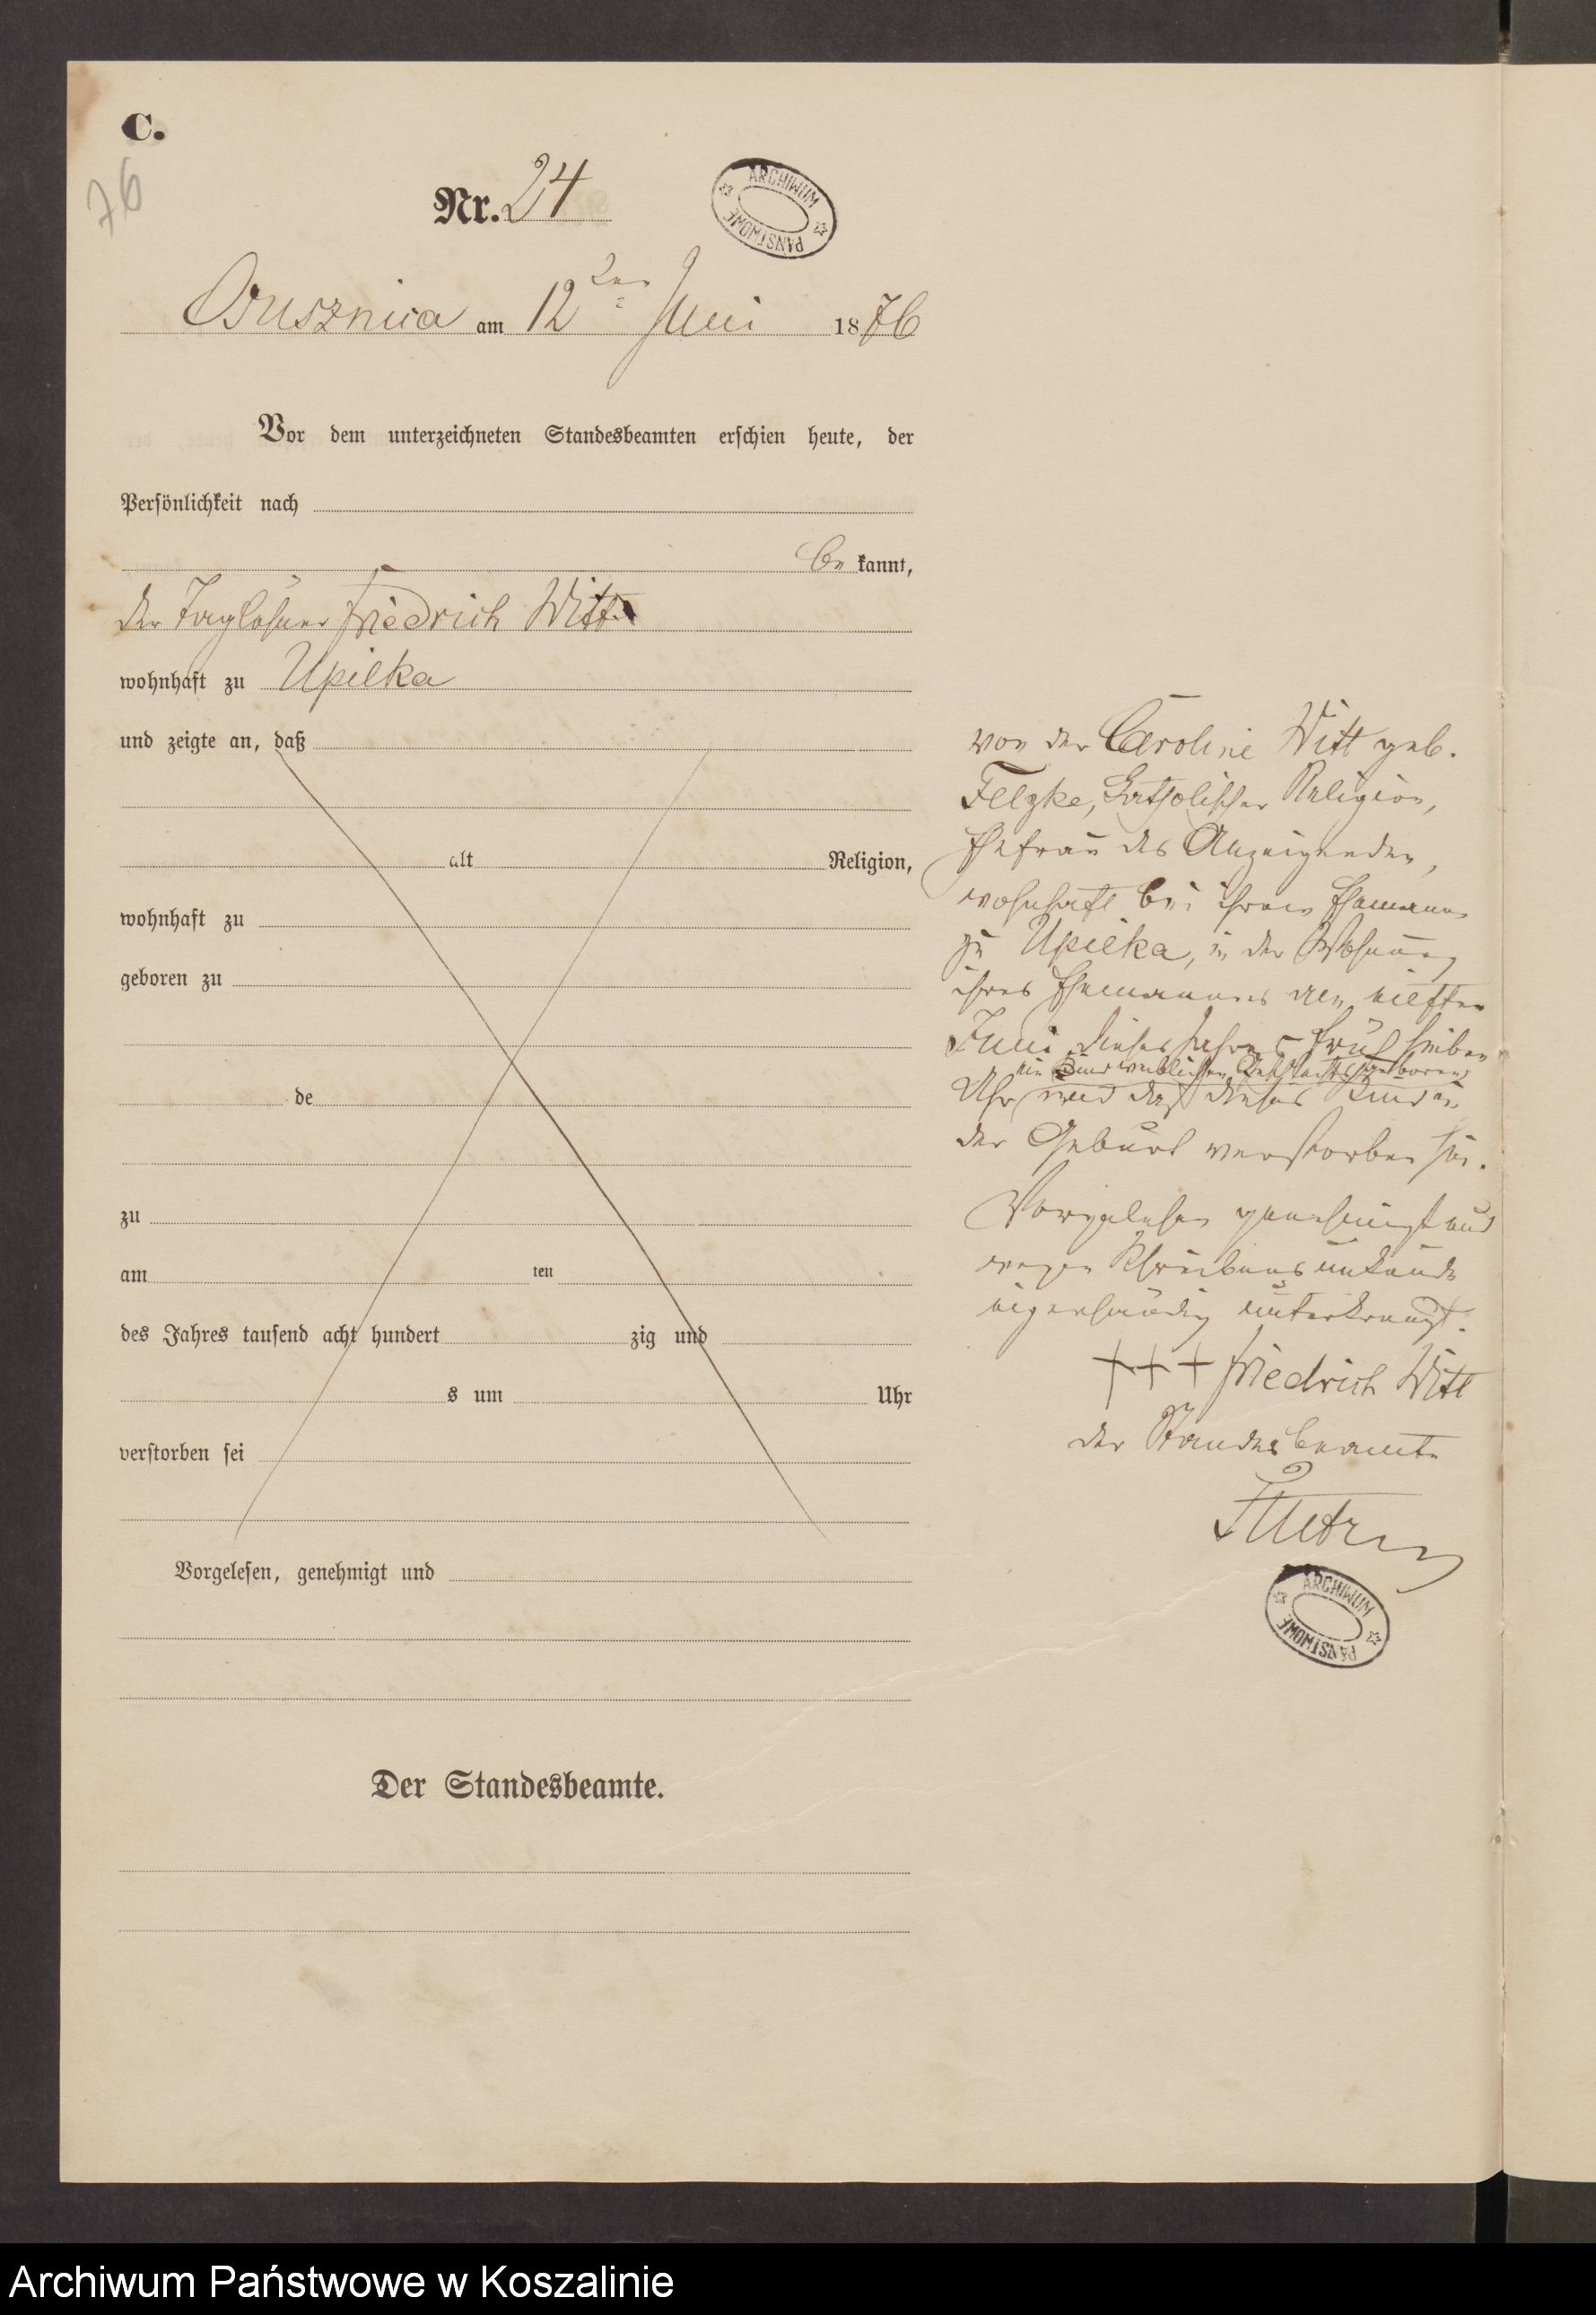 C.
76
Nr. 24
ARCHIWUM PAŃSTWOWE
Osusznica am 12ten Juni 1876
Vor dem unterzeichneten Standesbeamten erschien heute, der
Persönlichkeit nach
be kannt,
der Taglöhner Friedrich Witt
wohnhaft zu Upilka
und zeigte an, daß
alt Religion,
wohnhaft zu
geboren zu
de
zu
am ten
des Jahres tausend acht hundert zig und
s um Uhr
verstorben sei
Vorgelesen, genehmigt und
Der Standesbeamte.
von der Caroline Witt geb.
Felzke, katholischer Religion,
Ehefrau des Anzeigenden,
wohnhaft bei ihrem Ehemann
zu Upilka, in der Wohnung
ihres Ehemannes am eilften
Juni dieses Jahres früh sieben
ein Kind weiblichen Geschlechts geboren
Uhr und daß dieses Kind in
der Geburt verstorben sei.
Vorgelesen genehmigt und
wegen Schreibensunkunde
eigenhändig unterkreuzt.
+++ Friedrich Witt
der Standesbeamte
ARCHIWUM PAŃSTWOWE
Archiwum Państwowe w Koszalinie